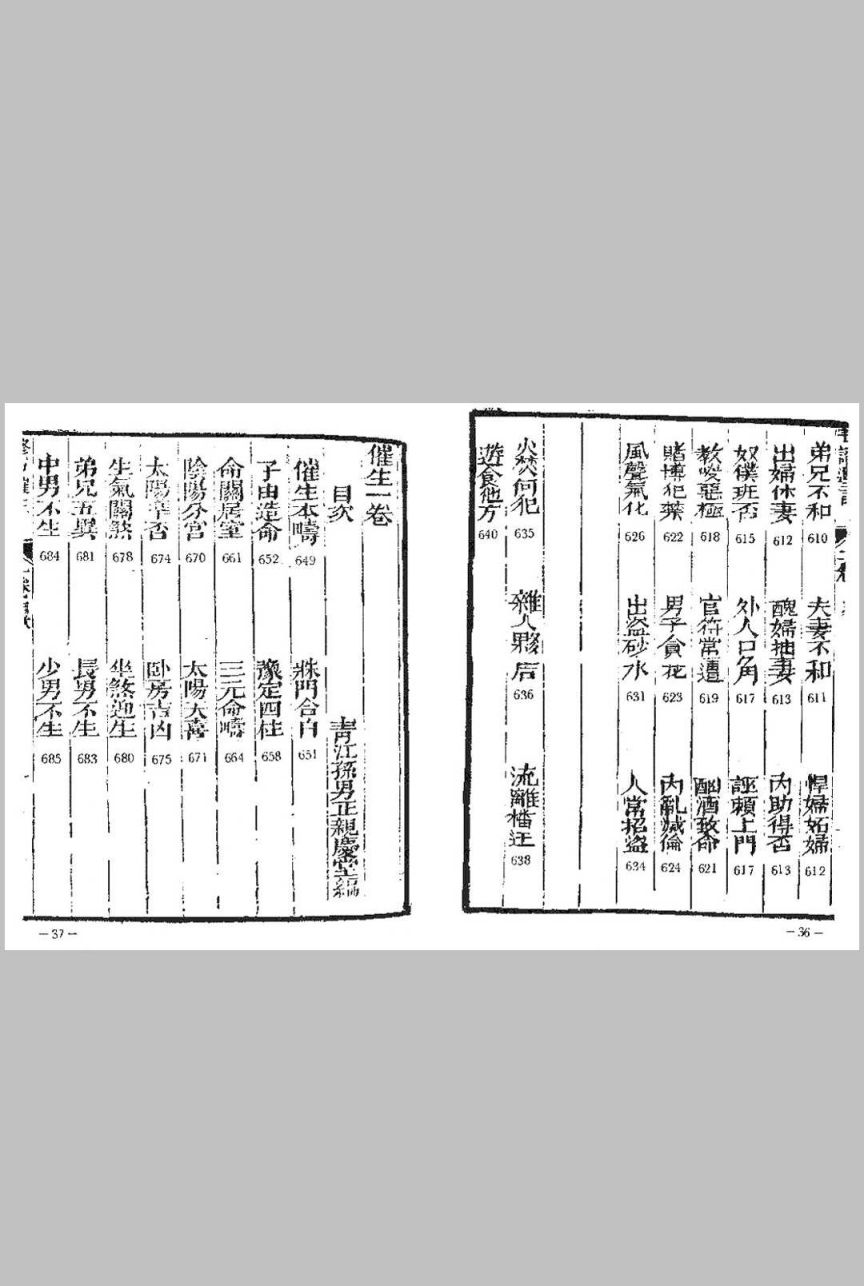 弟兄不和 610 夫妻不和 611 悍婦妬婦 612
出婦休妻 612 醜婦拙妻 613 內助得否 613
奴僕班否 615 外人口角 617 誣賴上門 617
教唆惡極 618 官符常遭 619 酗酒致命 621
賭博犯葉 622 男子貪花 623 內亂滅倫 624
風聲氣化 626 出盜砂水 631 人常招盜 634
火焚何犯 635 雜人夥居 636 流離 638
遊食他方 640
— 36 —
催生一卷
目次 青江孫男正親慶堂編
催生本疇 649 牀門合白 651
子由造命 652 豫定四柱 658
命關居室 661 三元命疇 664
陰陽分宮 670 太陽大喜 671
太陽幸否 674 臥房吉凶 675
生氣關煞 678 坐煞迎生 680
弟兄五巽 681 長男不生 683
中男不生 684 少男不生 685
— 37 —